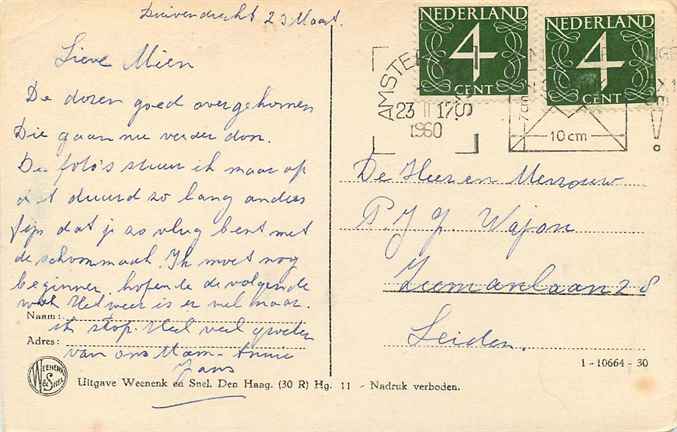 Duivendrecht 23 Maart.
Lieve Mien
De dozen goed overgekomen
Die gaan nu verder dan.
De foto's stuur ik maar op
het duurd zo lang anders
fijn dat je zo vlug bent met
de schoonmaak. Ik moet nog
beginnen, hopen te de volgende
week Het weer is er wel maar.
Naam: ik stop. Heel veel groeten
Adres: van ons Mam - Annie
Jans
WEENENK & SNEL
Uitgave Weenenk en Snel. Den Haag. (30 R) Hg. 11 - Nadruk verboden.
NEDERLAND
4
CENT
NEDERLAND
4
CENT
AMSTE
23 II 17
1960
10 cm
De Heer en Mevrouw
P. J. J. Wajon
Zeemanlaan 28
Leiden.
1 - 10664 - 30